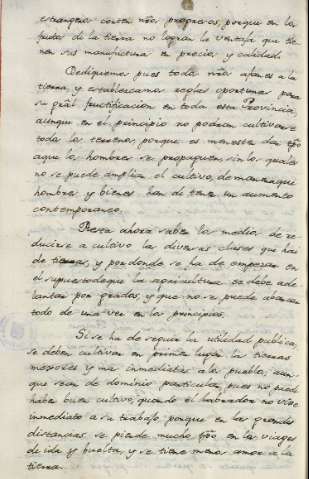 estrangero corten nros progresos, porque en los
frutos de la tierra no logran la ventaja que tie-
nen sus manufacturas en precio, y calidad.
Dediquemos pues todos nros afanes a la
tierra, y establezcamos reglas oportunas para
su gral fructificacion en toda esta Provincia,
aunque en el principio no podran cultivarse
todos los terrenos, porque es menester dar tpo
a que los hombres se propaguen sin los quales
no se puede ampliar el cultivo, de manera que
hombres y bienes han de tener un aumento
contemporaneo.
Resta ahora saber los medios de re-
ducirse a cultivo las diversas clases que hai
de tierras, y por donde se ha de empezar en
el supuesto de que la agricultura se debe ade-
lantar por grados, y que no se puede abarcar
todo de una vez en los principios.
Si se ha de seguir la utilidad publica,
se deben cultivar en primer lugar las tierras
mejores y mas inmediatas a los pueblos, aun-
que sean de dominio particular, pues no puede
haber buen cultivo, quando el labrador no vive
inmediato a su trabajo, porque en las grandes
distancias se pierde mucho tpo en los viages
de ida y buelta, y se tiene menos amor a la
tierra.